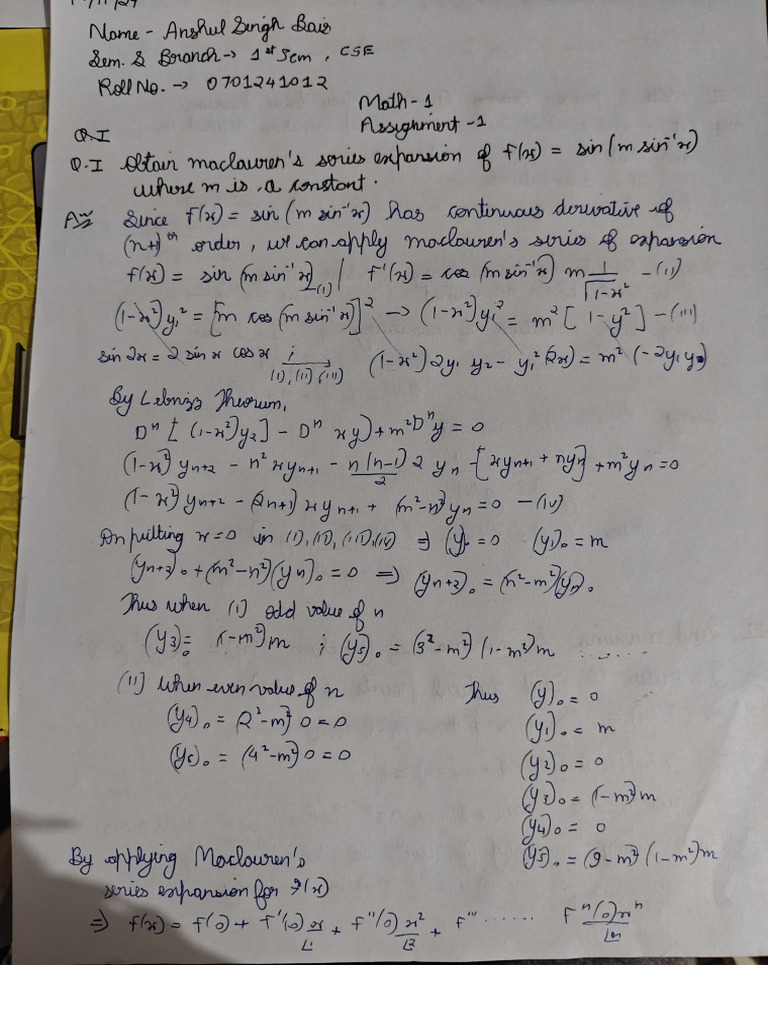 Name - Anshul Singh Bais
Sem. & Branch → 1st Sem, CSE
Roll No. → 0701241012
Math-1
Assignment-1
Q.I
Q.I Obtain maclauren's series expansion of f(x) = sin(m sin⁻¹x)
where m is a constant.
Ans Since f(x) = sin(m sin⁻¹x) has continuous derivative of
(n+1)th order, we can apply maclauren's series of expansion
f(x) = sin(m sin⁻¹x) -(I) | f'(x) = cos(m sin⁻¹x) m 1/√(1-x²) -(II)
(1-x²)y₁² = [m cos(m sin⁻¹x)]² → (1-x²)y₁² = m²[1-y²] -(III)
sin2x = 2 sinx cosx ; (I),(II),(III) → (1-x²)2y₁y₂ - y₁²(2x) = m²(-2y₁y₂)
By Lebniz Theorum,
Dⁿ[(1-x²)y₂] - Dⁿ xy) + m²Dⁿy = 0
(1-x²)yₙ₊₂ - n²xyₙ₊₁ - n(n-1)/2 2 yₙ - [xyₙ₊₁ + nyₙ] + m²yₙ = 0
(1-x²)yₙ₊₂ - (2n+1)xyₙ₊₁ + (m²-n²)yₙ = 0 -(IV)
On putting x=0 in (I),(II),(III),(IV) ⇒ (y)₀ = 0 (y₁)₀ = m
(yₙ₊₂)₀ + (m²-n²)(yₙ)₀ = 0 ⇒ (yₙ₊₂)₀ = (n²-m²)(yₙ)₀
Thus when (I) odd value of n
(y₃)₀ = (1-m²)m ; (y₅)₀ = (3²-m²)(1-m²)m ......
(II) when even value of n
(y₄)₀ = (2²-m²)0 = 0
(y₆)₀ = (4²-m²)0 = 0
Thus (y)₀ = 0
(y₁)₀ = m
(y₂)₀ = 0
(y₃)₀ = (1-m²)m
(y₄)₀ = 0
(y₅)₀ = (9-m²)(1-m²)m
By applying Maclauren's
series expansion for f(x)
⇒ f(x) = f(0) + f'(0) x/∟1 + f''(0) x²/∟2 + f''' ...... fⁿ(0)xⁿ/∟n